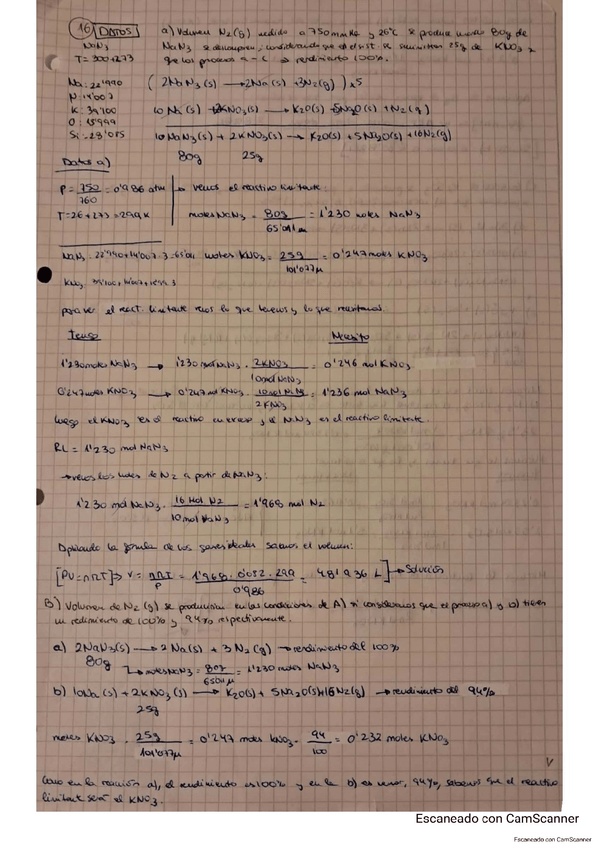 16 DATOS
a) Volumen N2(g) medido a 750 mmHg y 26ºC se produce cuando 80g de
NaN3
NaN3 se descomponen, considerando que en el sist. se suministran 25g de KNO3 y
T= 300+273
que los procesos a - c rendimiento 100%.
Na: 22'990
(2NaN3(s) → 2Na(s) + 3N2(g)) x5
N: 14'007
K: 39'100
10Na(s) + 2KNO3(s) → K2O(s) + 5Na2O(s) + N2(g)
O: 15'999
Si: 28'085
10NaN3(s) + 2KNO3(s) → K2O(s) + 5Na2O(s) + 16N2(g)
80g 25g
Datos a)
P = 750/760 = 0'986 atm
→ vemos el reactivo limitante:
T = 26 + 273 = 299 K
moles NaN3 = 80g / 65'011 = 1'230 moles NaN3
NaN3 = 22'990+14'007·3 = 65'011
moles KNO3 = 25g / 101'077 = 0'247 moles KNO3
KNO3:
para ver el react. limitante vemos lo que tenemos y lo que necesitamos.
Tengo Necesito
1'230 moles NaN3 → 1'230 mol NaN3 · 2KNO3 / 10 mol NaN3 = 0'246 mol KNO3
0'247 moles KNO3 → 0'247 mol KNO3 · 10 mol NaN3 / 2 KNO3 = 1'236 mol NaN3
luego el KNO3 es el reactivo en exceso y el NaN3 es el reactivo limitante.
RL = 1'230 mol NaN3
→ vemos los moles de N2 a partir de NaN3:
1'230 mol NaN3 · 16 mol N2 / 10 mol NaN3 = 1'968 mol N2
Aplicando la fórmula de los gases ideales sacamos el volumen:
[PV = nRT] → V = nRT / P = 1'968 · 0'082 · 299 / 0'986 = 48'936 L → Solución
B) Volumen de N2(g) se producirían en las condiciones de A) si consideramos que el proceso a) y b) tienen
un rendimiento de 100% y 94% respectivamente.
a) 2NaN3(s) → 2Na(s) + 3N2(g) → rendimiento del 100%
80g
→ moles NaN3 = 80g / 65'011 = 1'230 moles NaN3
b) 10Na(s) + 2KNO3(s) → K2O(s) + 5Na2O(s) + 16N2(g) → rendimiento del 94%
25g
moles KNO3 = 25g / 101'077 = 0'247 moles KNO3 · 94/100 = 0'232 moles KNO3
Como en la reacción a), el rendimiento es 100% y en la b) es menor, 94%, sabemos que el reactivo
limitante será el KNO3.
Escaneado con CamScanner
Escaneado con CamScanner